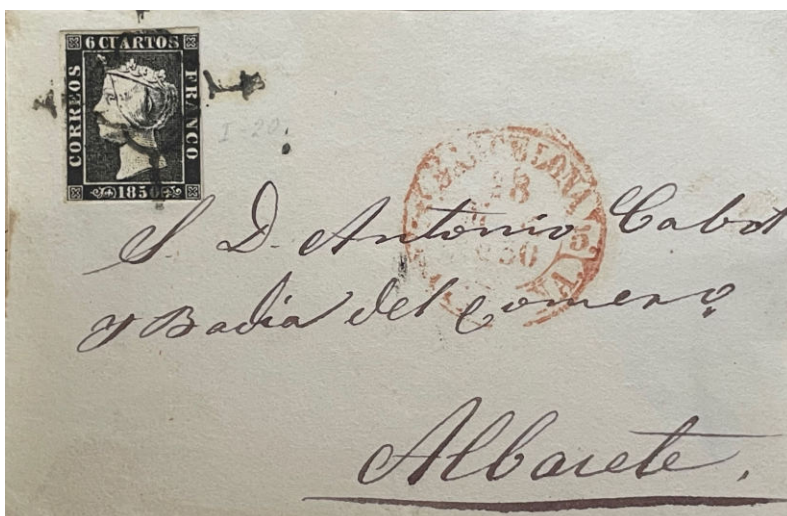 6 CUARTOS
CORREOS
FRANCO
1850
I-20.
BARCELONA
1850
S. D. Antonio Cabot
y Badia del Comerº
Albacete.